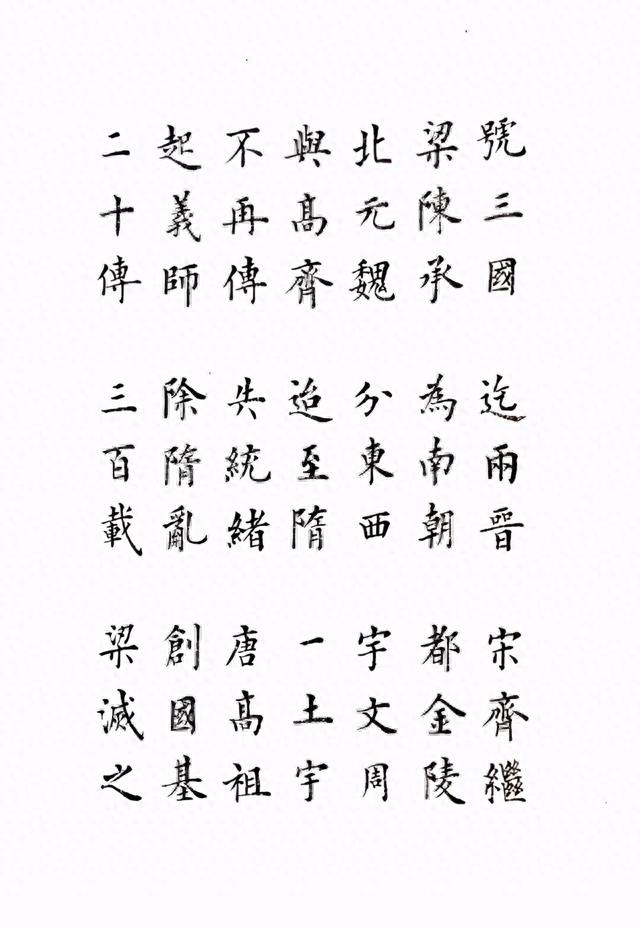 號三國 迄兩晉 宋齊繼
梁陳承 為南朝 都金陵
北元魏 分東西 宇文周
與高齊 迨至隋 一土宇
不再傳 失統緒 唐高祖
起義師 除隋亂 創國基
二十傳 三百載 梁滅之